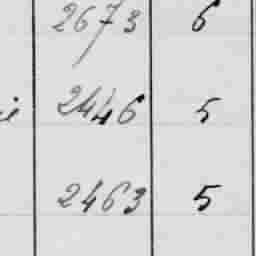 2673 6
2446 5
2463 5